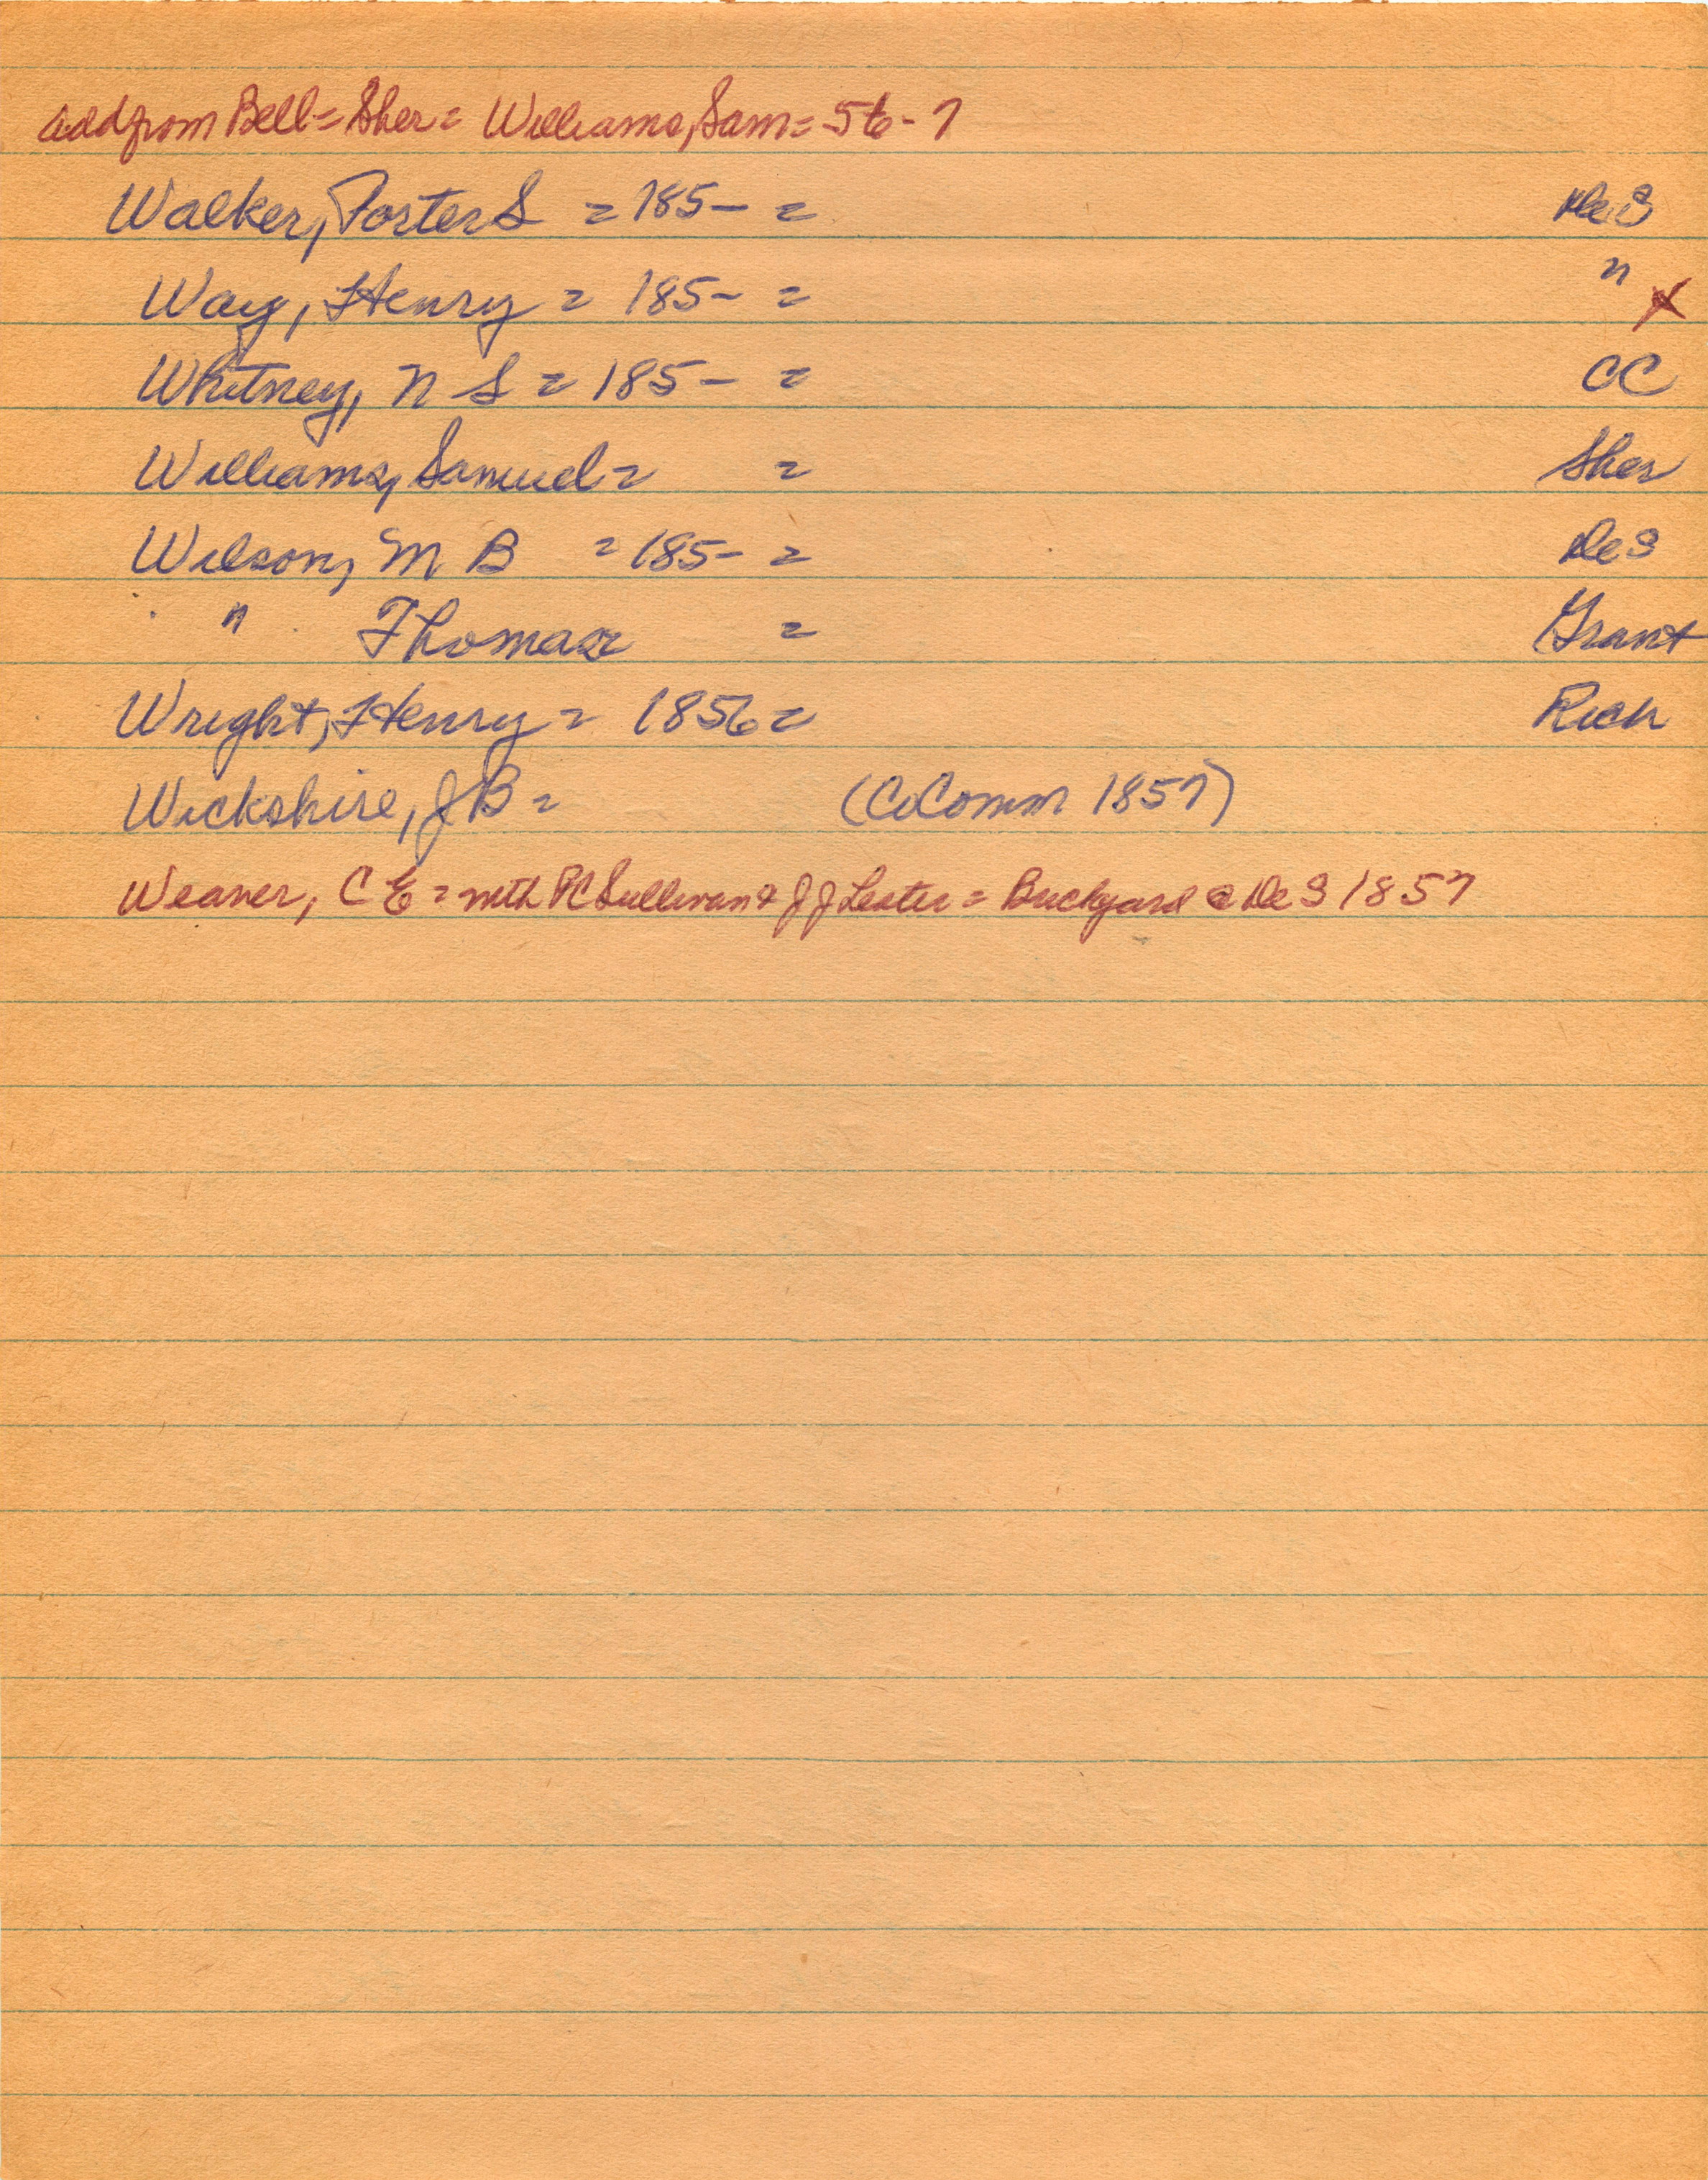 add from Bell = Sher = Williams, Sam = 56-7
Walker, Porter S = 185- = De S
Way, Henry = 185- = " X
Whitney, N S = 185- = CC
Williams, Samuel = = Sher
Wilson, M B = 185- = De S
" Thomas = Grant
Wright, Henry = 1856 = Rich
Wickshire, J B = (CoComm 1857)
Weaver, C E = with Sullivan & J J Lester = Brickyard @ De S 1857